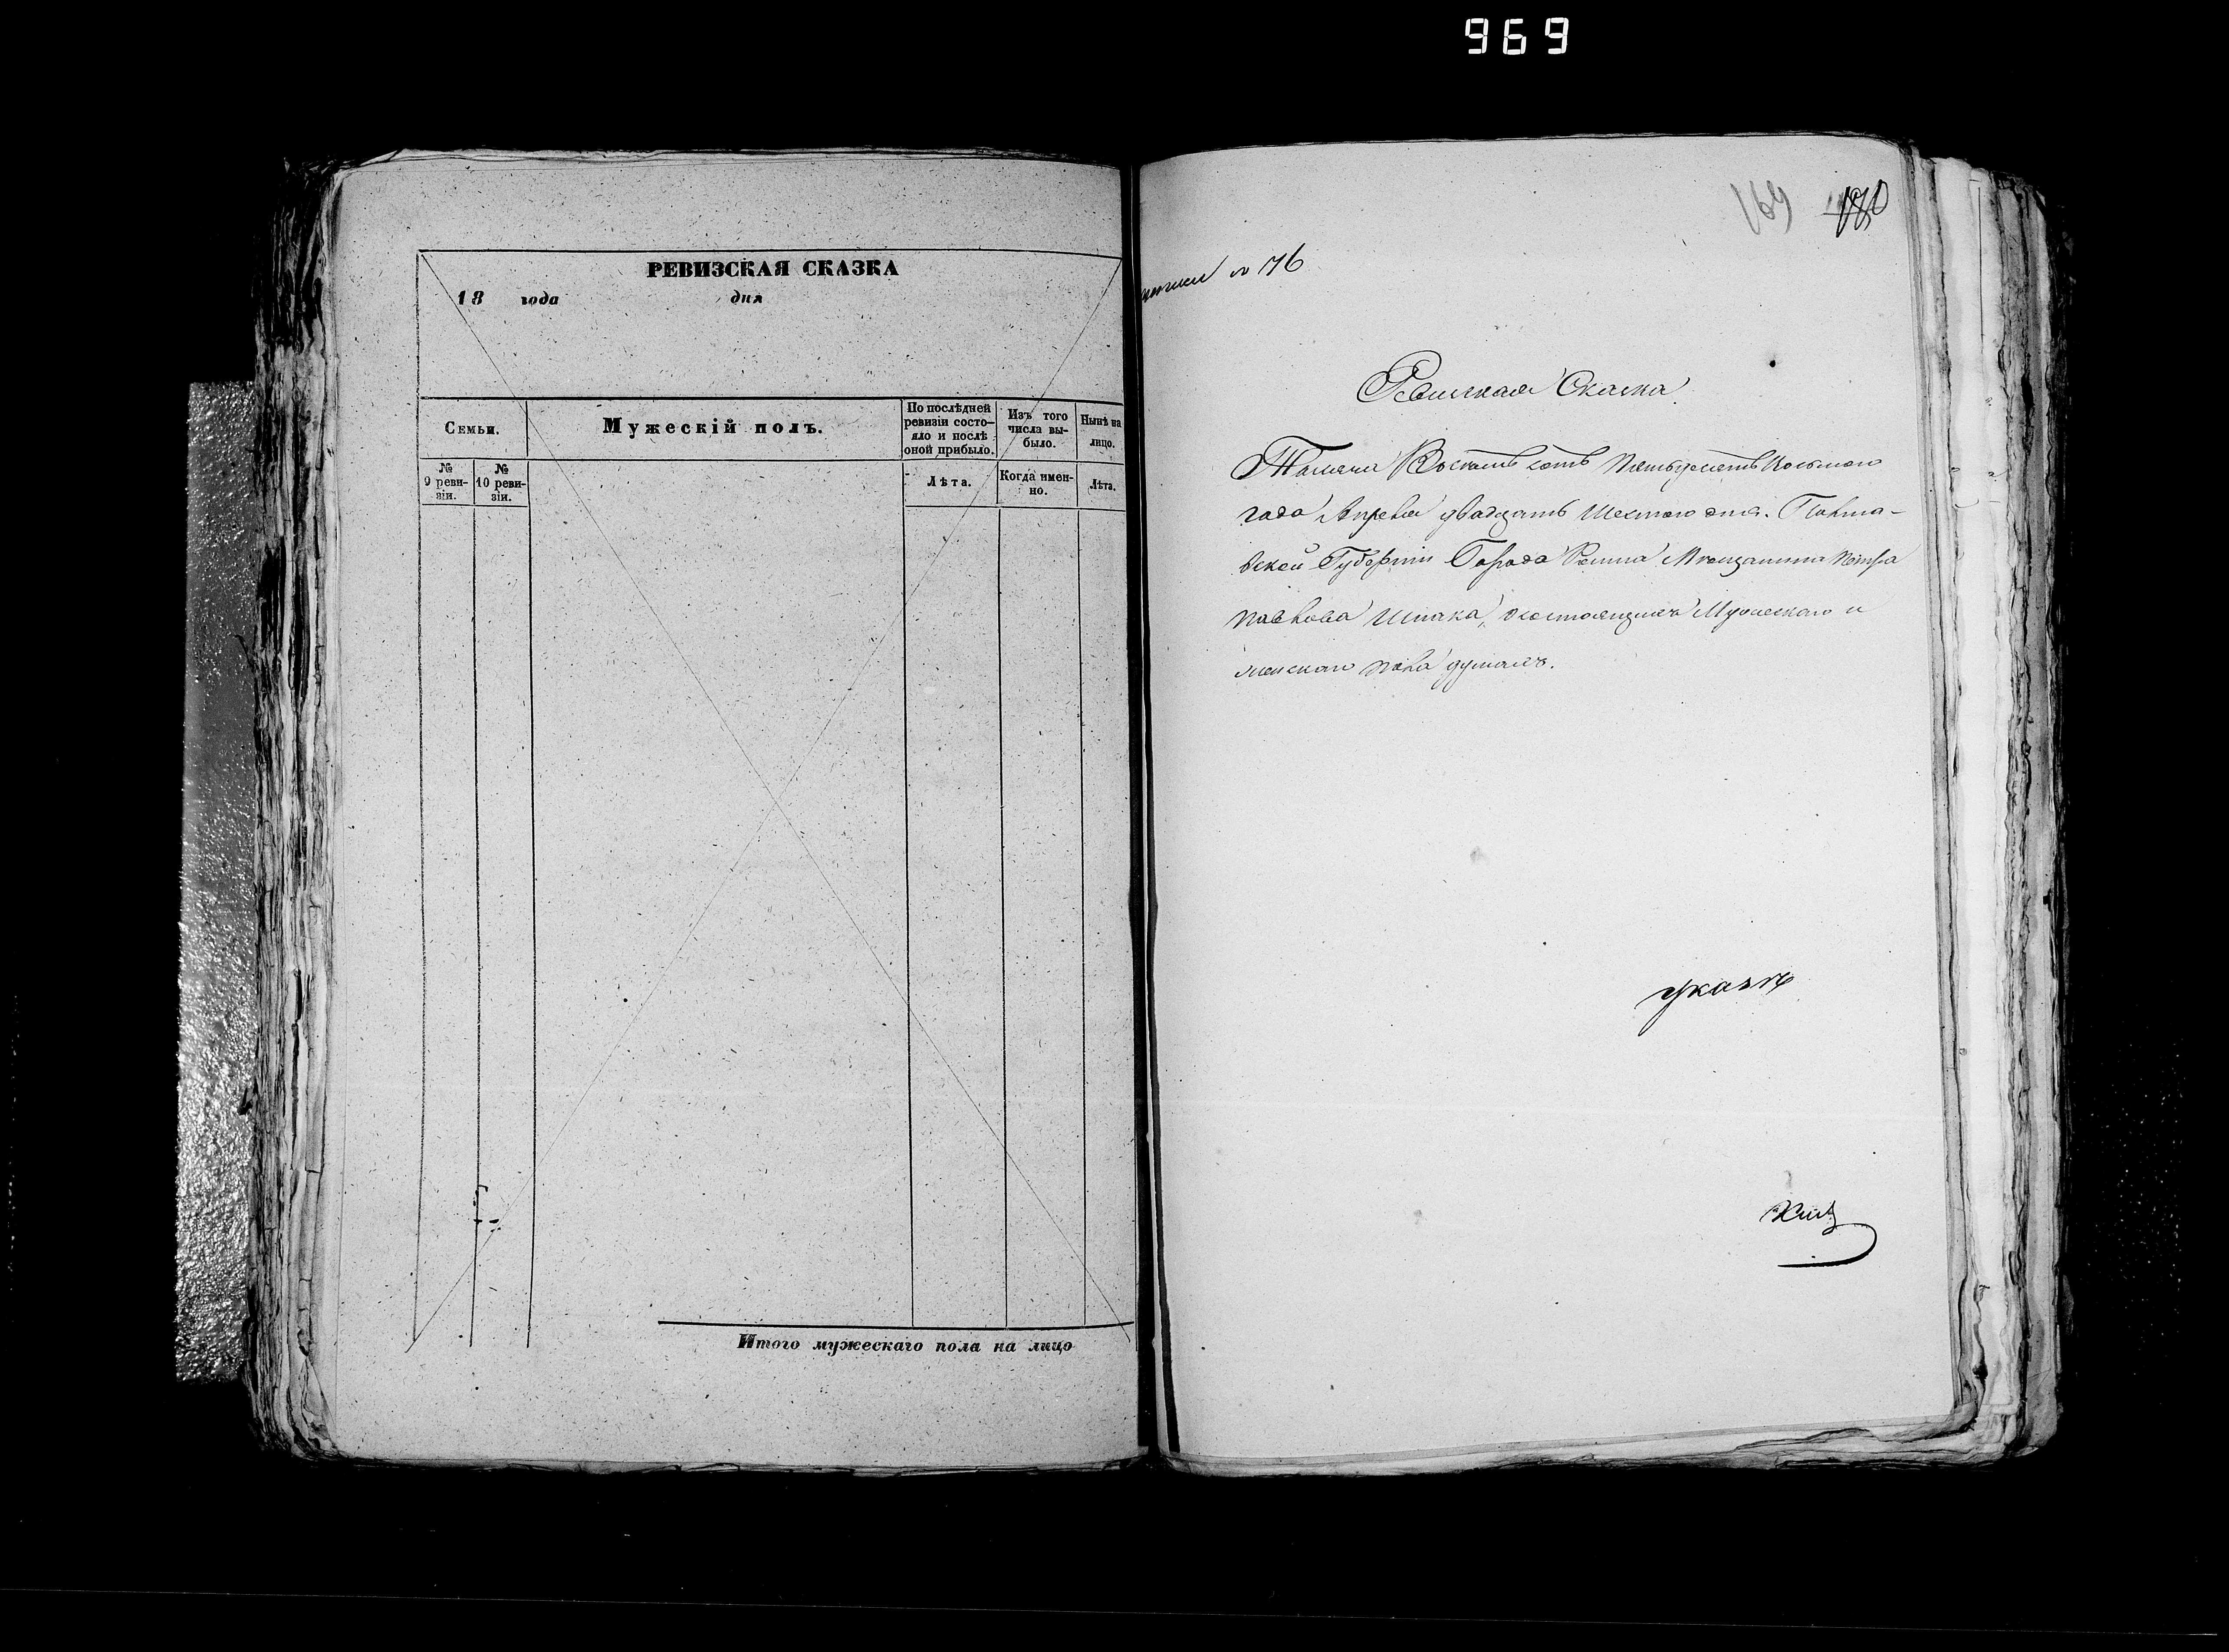 969
РЕВИЗСКАЯ СКАЗКА
18 года дня
Семьи.
Мужескій полъ.
По послѣдней ревизіи состо-
яло и послѣ
оной прибыло.
Изъ того
числа вы-
было.
Нынѣ на
лицо.
№
9 реви-
зіи.
№
10 реви-
зіи.
Лѣта.
Когда имен-
но.
Лѣта.
Итого мужескаго пола на лицо
169
№ 76
Ревизская Сказка.
Тысяча Восемь сотъ пятьдесятъ восьмаго
года Апреля двадцать Шестого дня. Полта-
вской Губерніи Города Ромна Мещанина Петра
Павлова Шпака, о состоящихъ Мужескаго и
женскаго пола душахъ.